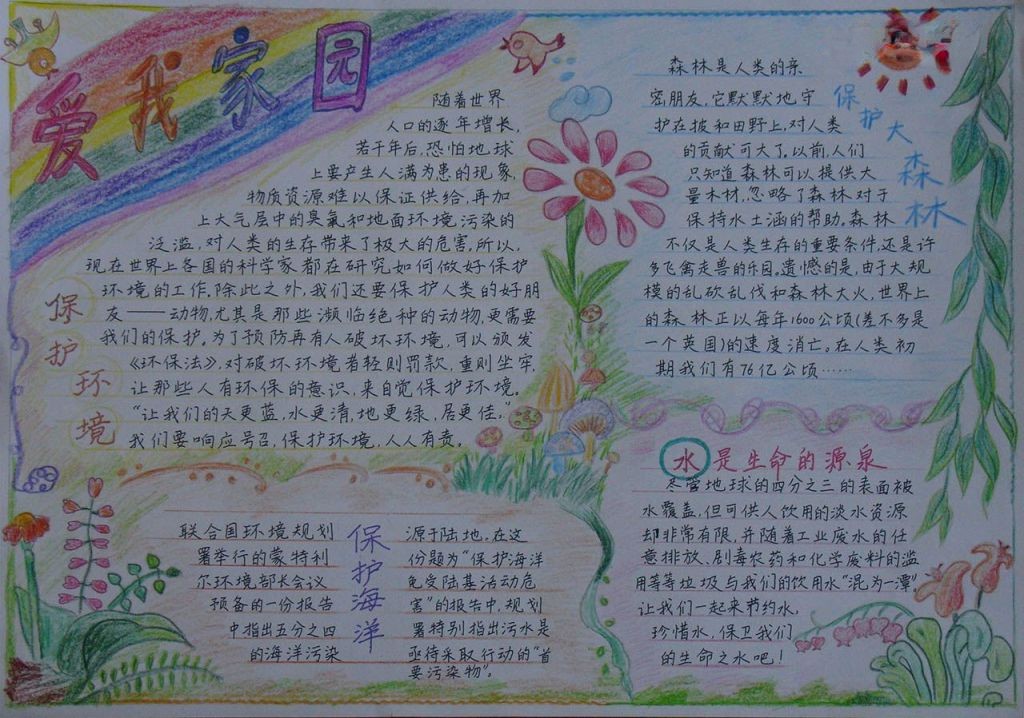 爱我家园
随着世界
人口的逐年增长,
若干年后,恐怕地球
上要产生人满为患的现象,
物质资源难以保证供给,再加
上大气层中的臭氧和地面环境污染的
泛滥,对人类的生存带来了极大的危害。所以,
现在世界上各国的科学家都在研究如何做好保护
环境的工作。除此之外,我们还要保护人类的好朋
友——动物,尤其是那些濒临绝种的动物,更需要
我们的保护。为了预防再有人破坏环境,可以颁发
《环保法》,对破坏环境者轻则罚款,重则坐牢,
让那些人有环保的意识,来自觉保护环境。
“让我们的天更蓝,水更清,地更绿,居更佳,”
我们要响应号召,保护环境,人人有责。
保护环境
森林是人类的亲
密朋友,它默默地守
护在披和田野上,对人类
的贡献可大了,以前,人们
只知道森林可以提供大
量木材,忽略了森林对于
保持水土涵的帮助。森林
不仅是人类生存的重要条件,还是许
多飞禽走兽的乐园。遗憾的是,由于大规
模的乱砍乱伐和森林大火,世界上
的森林正以每年1600公顷(差不多是
一个英国)的速度消亡。在人类初
期我们有76亿公顷……
保护大森林
联合国环境规划
署举行的蒙特利
尔环境部长会议
预备的一份报告
中指出五分之四
的海洋污染
保护海洋
源于陆地。在这
份题为“保护海洋
免受陆基活动危
害”的报告中,规划
署特别指出污水是
亟待采取行动的“首
要污染物”。
水是生命的源泉
尽管地球的四分之三的表面被
水覆盖,但可供人饮用的淡水资源
却非常有限,并随着工业废水的任
意排放、剧毒农药和化学废料的滥
用等等垃圾与我们的饮用水“混为一潭”,
让我们一起来节约水,
珍惜水,保卫我们
的生命之水吧!